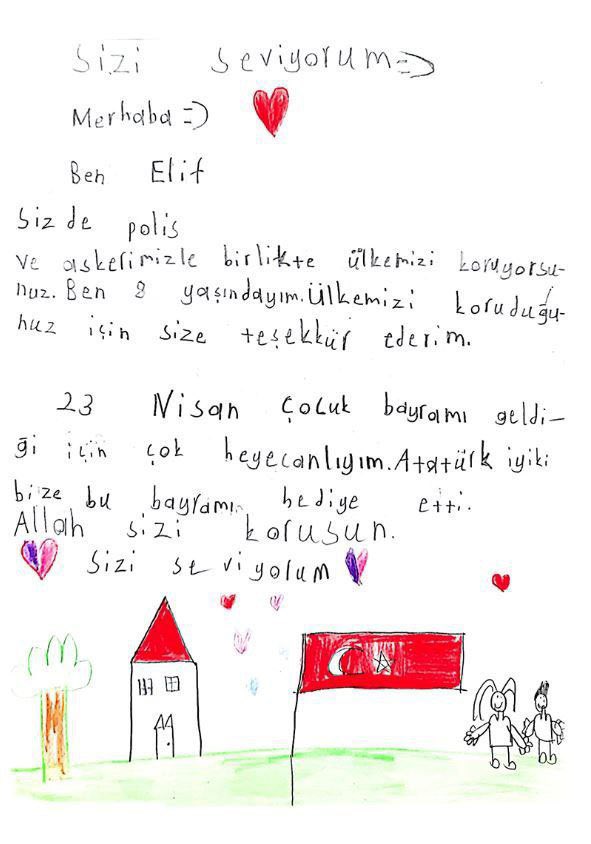 Sizi seviyorum=)
Merhaba=)
Ben Elif
Sizde polis
ve askerimizle birlikte ülkemizi koruyorsu-
nuz. Ben 8 yaşındayım. Ülkemizi koruduğu-
nuz için size teşekkür ederim.
23 Nisan Çocuk bayramı geldi-
ği için çok heyecanlıyım. Atatürk iyiki
bize bu bayramı hediye etti.
Allah sizi korusun.
Sizi seviyorum